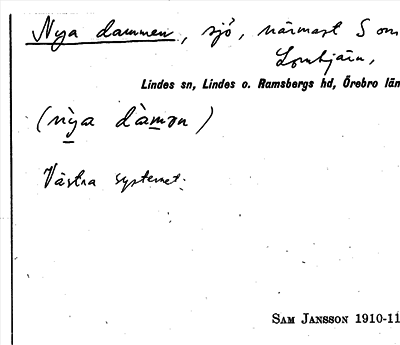 Nya dammen, sjö, närmast S om
Lomtjärn,
Lindes sn, Lindes o. Ramsbergs hd, Örebro län
(nỳa dàmən)
Västra systemet.
SAM JANSSON 1910-11